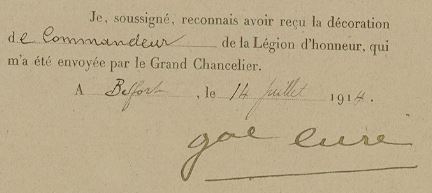 Je, soussigné, reconnais avoir reçu la décoration
de Commandeur de la Légion d'honneur, qui
m'a été envoyée par le Grand Chancelier.
A Belfort, le 14 juillet 1914.
gal curé